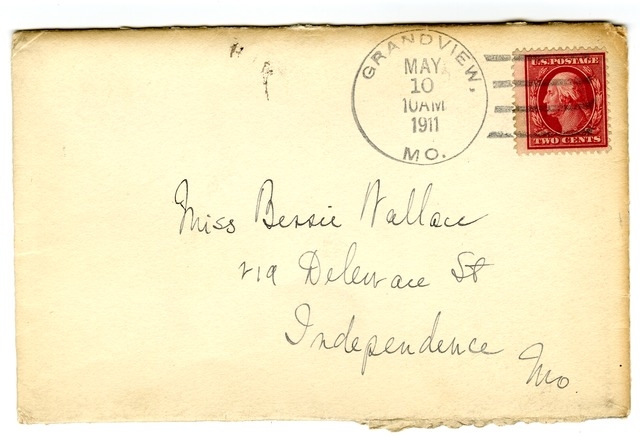 GRANDVIEW,
MAY
10
10AM
1911
MO.
U.S. POSTAGE
TWO CENTS
Miss Bessie Wallace
219 Delaware St
Independence
Mo.